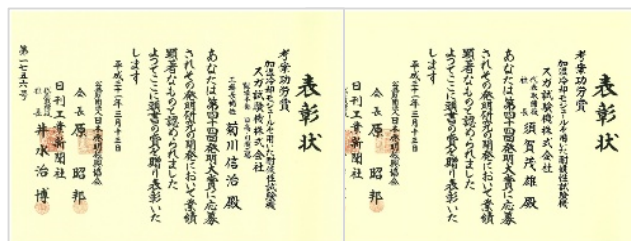 表彰状
考案功労賞
加温冷却モジュールを用いた耐候性試験機
スガ試験機株式会社
菊川信治殿
あなたは第四十四回発明大賞に応募
されその発明研究の開発において業績
顕著なものと認められました
よつてここに頭書の賞を贈り表彰いた
します
平成三十一年三月十三日
公益財団法人日本発明振興協会
会長 原 昭邦
日刊工業新聞社
井水治博
第一七五六号
表彰状
考案功労賞
加温冷却モジュールを用いた耐候性試験機
スガ試験機株式会社
代表取締役
社長 須賀茂雄殿
あなたは第四十四回発明大賞に応募
されその発明研究の開発において業績
顕著なものと認められました
よつてここに頭書の賞を贈り表彰いた
します
平成三十一年三月十三日
公益財団法人日本発明振興協会
会長 原 昭邦